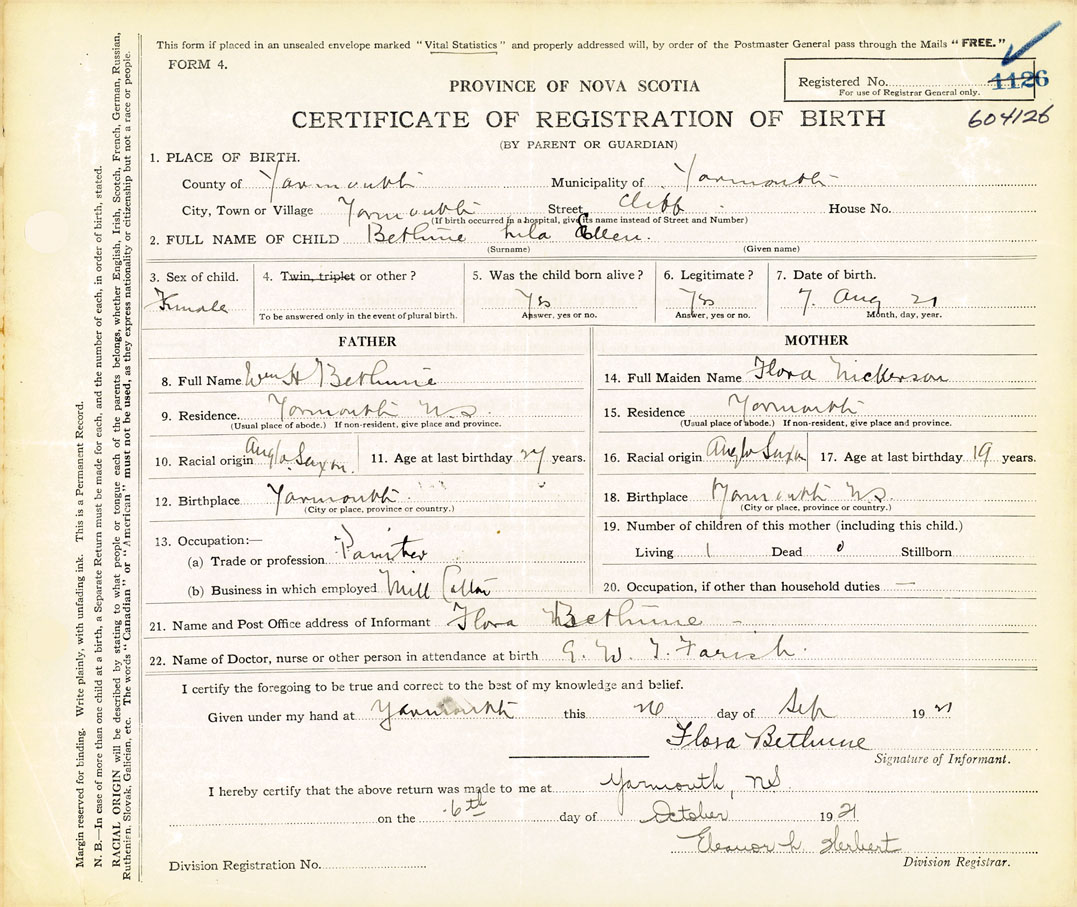 This form if placed in an unsealed envelope marked "Vital Statistics" and properly addressed will, by order of the Postmaster General pass through the Mails "FREE."
FORM 4.
Registered No. 1126
For use of Registrar General only.
604126
PROVINCE OF NOVA SCOTIA
CERTIFICATE OF REGISTRATION OF BIRTH
(BY PARENT OR GUARDIAN)
1. PLACE OF BIRTH.
County of Yarmouth Municipality of Yarmouth
City, Town or Village Yarmouth Street Cliff House No.
(If birth occurred in a hospital, give its name instead of Street and Number)
2. FULL NAME OF CHILD Bethune Lila Ellen.
(Surname) (Given name)
3. Sex of child. 4. Twin, triplet or other? 5. Was the child born alive? 6. Legitimate? 7. Date of birth.
Female Yes Yes 7. Aug 21
To be answered only in the event of plural birth. Answer, yes or no. Answer, yes or no. Month, day, year.
FATHER
8. Full Name Wm H Bethune
9. Residence. Yarmouth N.S.
(Usual place of abode.) If non-resident, give place and province.
10. Racial origin Anglo Saxon. 11. Age at last birthday 27 years.
12. Birthplace Yarmouth.
(City or place, province or country.)
13. Occupation:—
(a) Trade or profession. Painter
(b) Business in which employed Mill Cotton
MOTHER
14. Full Maiden Name Flora Nickerson
15. Residence Yarmouth
(Usual place of abode.) If non-resident, give place and province.
16. Racial origin Anglo Saxon 17. Age at last birthday 19 years.
18. Birthplace Yarmouth N.S.
(City or place, province or country.)
19. Number of children of this mother (including this child.)
Living 1 Dead 0 Stillborn
20. Occupation, if other than household duties —
21. Name and Post Office address of Informant Flora Bethune -
22. Name of Doctor, nurse or other person in attendance at birth G. W. T. Farish.
I certify the foregoing to be true and correct to the best of my knowledge and belief.
Given under my hand at Yarmouth this 26 day of Sep 1921
Flora Bethune
Signature of Informant.
I hereby certify that the above return was made to me at Yarmouth, N.S.
on the 6th day of October 1921
Eleanor L. Herbert
Division Registration No. Division Registrar.
Margin reserved for binding. Write plainly, with unfading ink. This is a Permanent Record.
N. B.—In case of more than one child at a birth, a Separate Return must be made for each, and the number of each, in order of birth, stated.
RACIAL ORIGIN will be described by stating to what people or tongue each of the parents belongs, whether English, Irish, Scotch, French, German, Russian,
Ruthenian, Slovak, Galician, etc. The words "Canadian" or "American" must not be used, as they express nationality or citizenship but not a race or people.